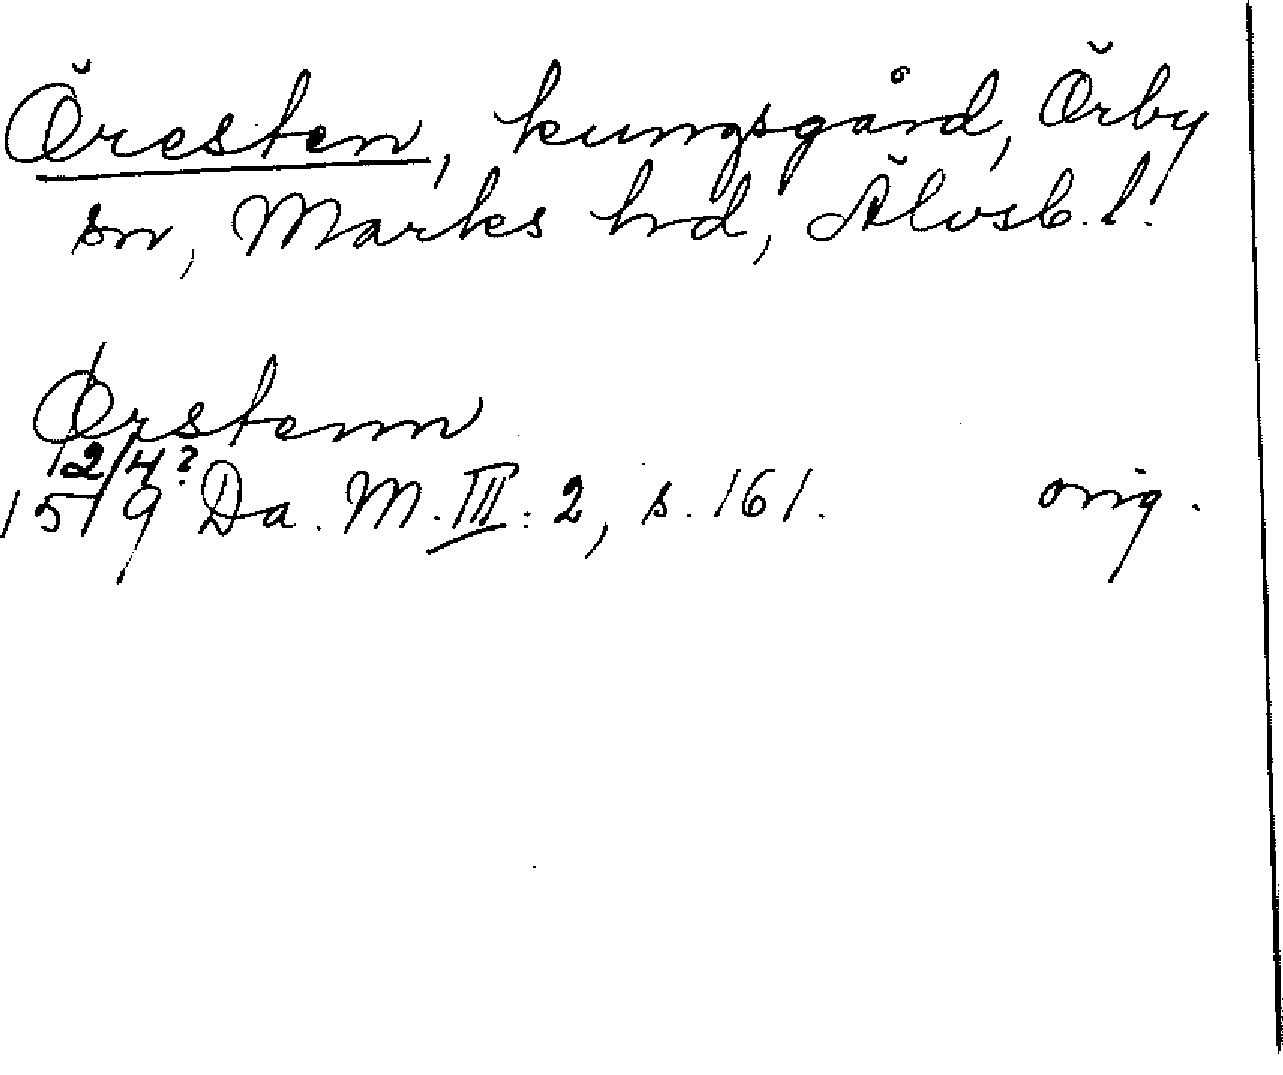 Öresten, kungsgård, Örby
sn, Marks hd, Älvsb. l.
Ørstenn
12/4?
1519 Da. M. III: 2, s. 161. orig.